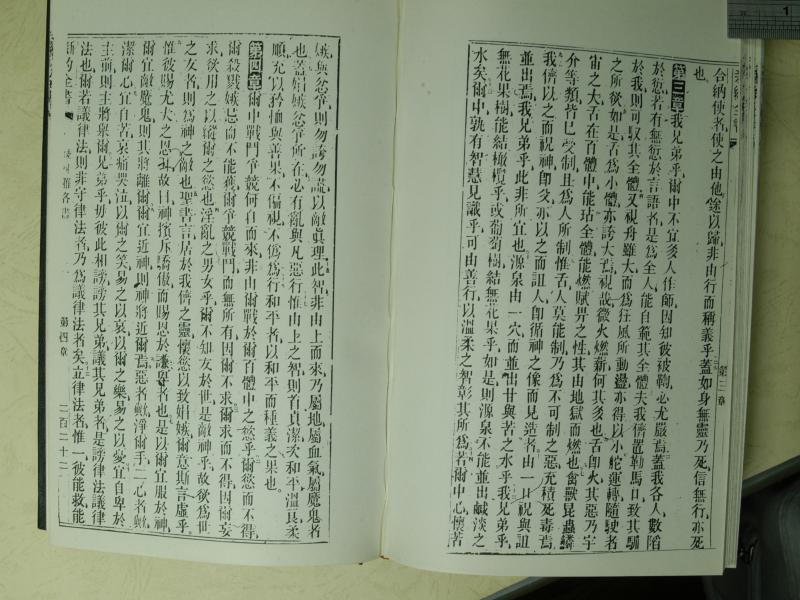 合納使者使之由他途以歸非由行而稱義乎蓋如身無靈乃死信無行亦死
也
第三章
第三章我兄弟乎爾中不宜多人作師因知彼被鞫必尤嚴焉蓋我各人數陷
於愆若有無愆於言語者是為全人能自範其全體夫我儕置勒馬口致其馴
於我則可馭其全體又視舟雖大而為狂風所動盪亦得以小舵運轉隨駛者
之所欲如是舌為小體亦誇大焉視哉微火燃薪何其多也舌卽火其惡乃宇
宙之大舌在百體中能玷全體能燃賦畀之性其由地獄而燃也禽獸昆蟲鱗
介等類皆已受制且為人所制惟舌人莫能制乃為不可制之惡充積死毒焉
我儕以之而祝神卽父亦以之而詛人卽循神之像而見造者由一口祝與詛
並出焉我兄弟乎此非所宜也源泉由一穴而並出甘與苦之水乎我兄弟乎
無花果樹能結橄欖乎或葡萄樹結無花果乎如是則源泉不能並出鹹淡之
水矣爾中孰有智慧見識乎可由善行以溫柔之智彰其所為若爾中心懷苦
嫉與忿爭則勿誇勿謊以敵眞理此智非由上而來乃屬地屬血氣屬魔鬼者
也蓋媢嫉忿爭所在必有亂與凡惡行惟由上之智則首貞潔次和平溫良柔
順充以矜恤與善果不偏視不僞為行和平者以和平而種義之果也
第四章爾中戰鬥爭競何自而來非由爾戰於爾百體中之慾乎爾慾而不得
爾殺戮嫉忌而不能獲爾爭競戰鬥而無所有因爾不求爾求而不得因爾妄
求欲用之以縱爾之慾也淫亂之男女乎爾不知友於世是敵神乎故欲為世
之友者則為神之敵也聖書言居於我儕之靈懷慾以致媢嫉爾意斯言虛乎
惟彼賜尤大之恩故曰神擯斥驕傲而賜恩於謙卑者也是以爾宜服於神
爾宜敵魔鬼則其將離爾爾宜近神則神將近爾焉惡者歟淨爾手二心者歟
潔爾心宜自苦哀痛哭泣以爾之笑易之以哀以爾之樂易之以憂宜自卑於
主前則主將舉爾兄弟乎毋彼此相謗謗其兄弟議其兄弟者是謗律法議律
法也爾若議律法則非守律法者乃為議律法者矣立律法者惟一彼能救能
新約全書
雅各書
第四章
二百二十二